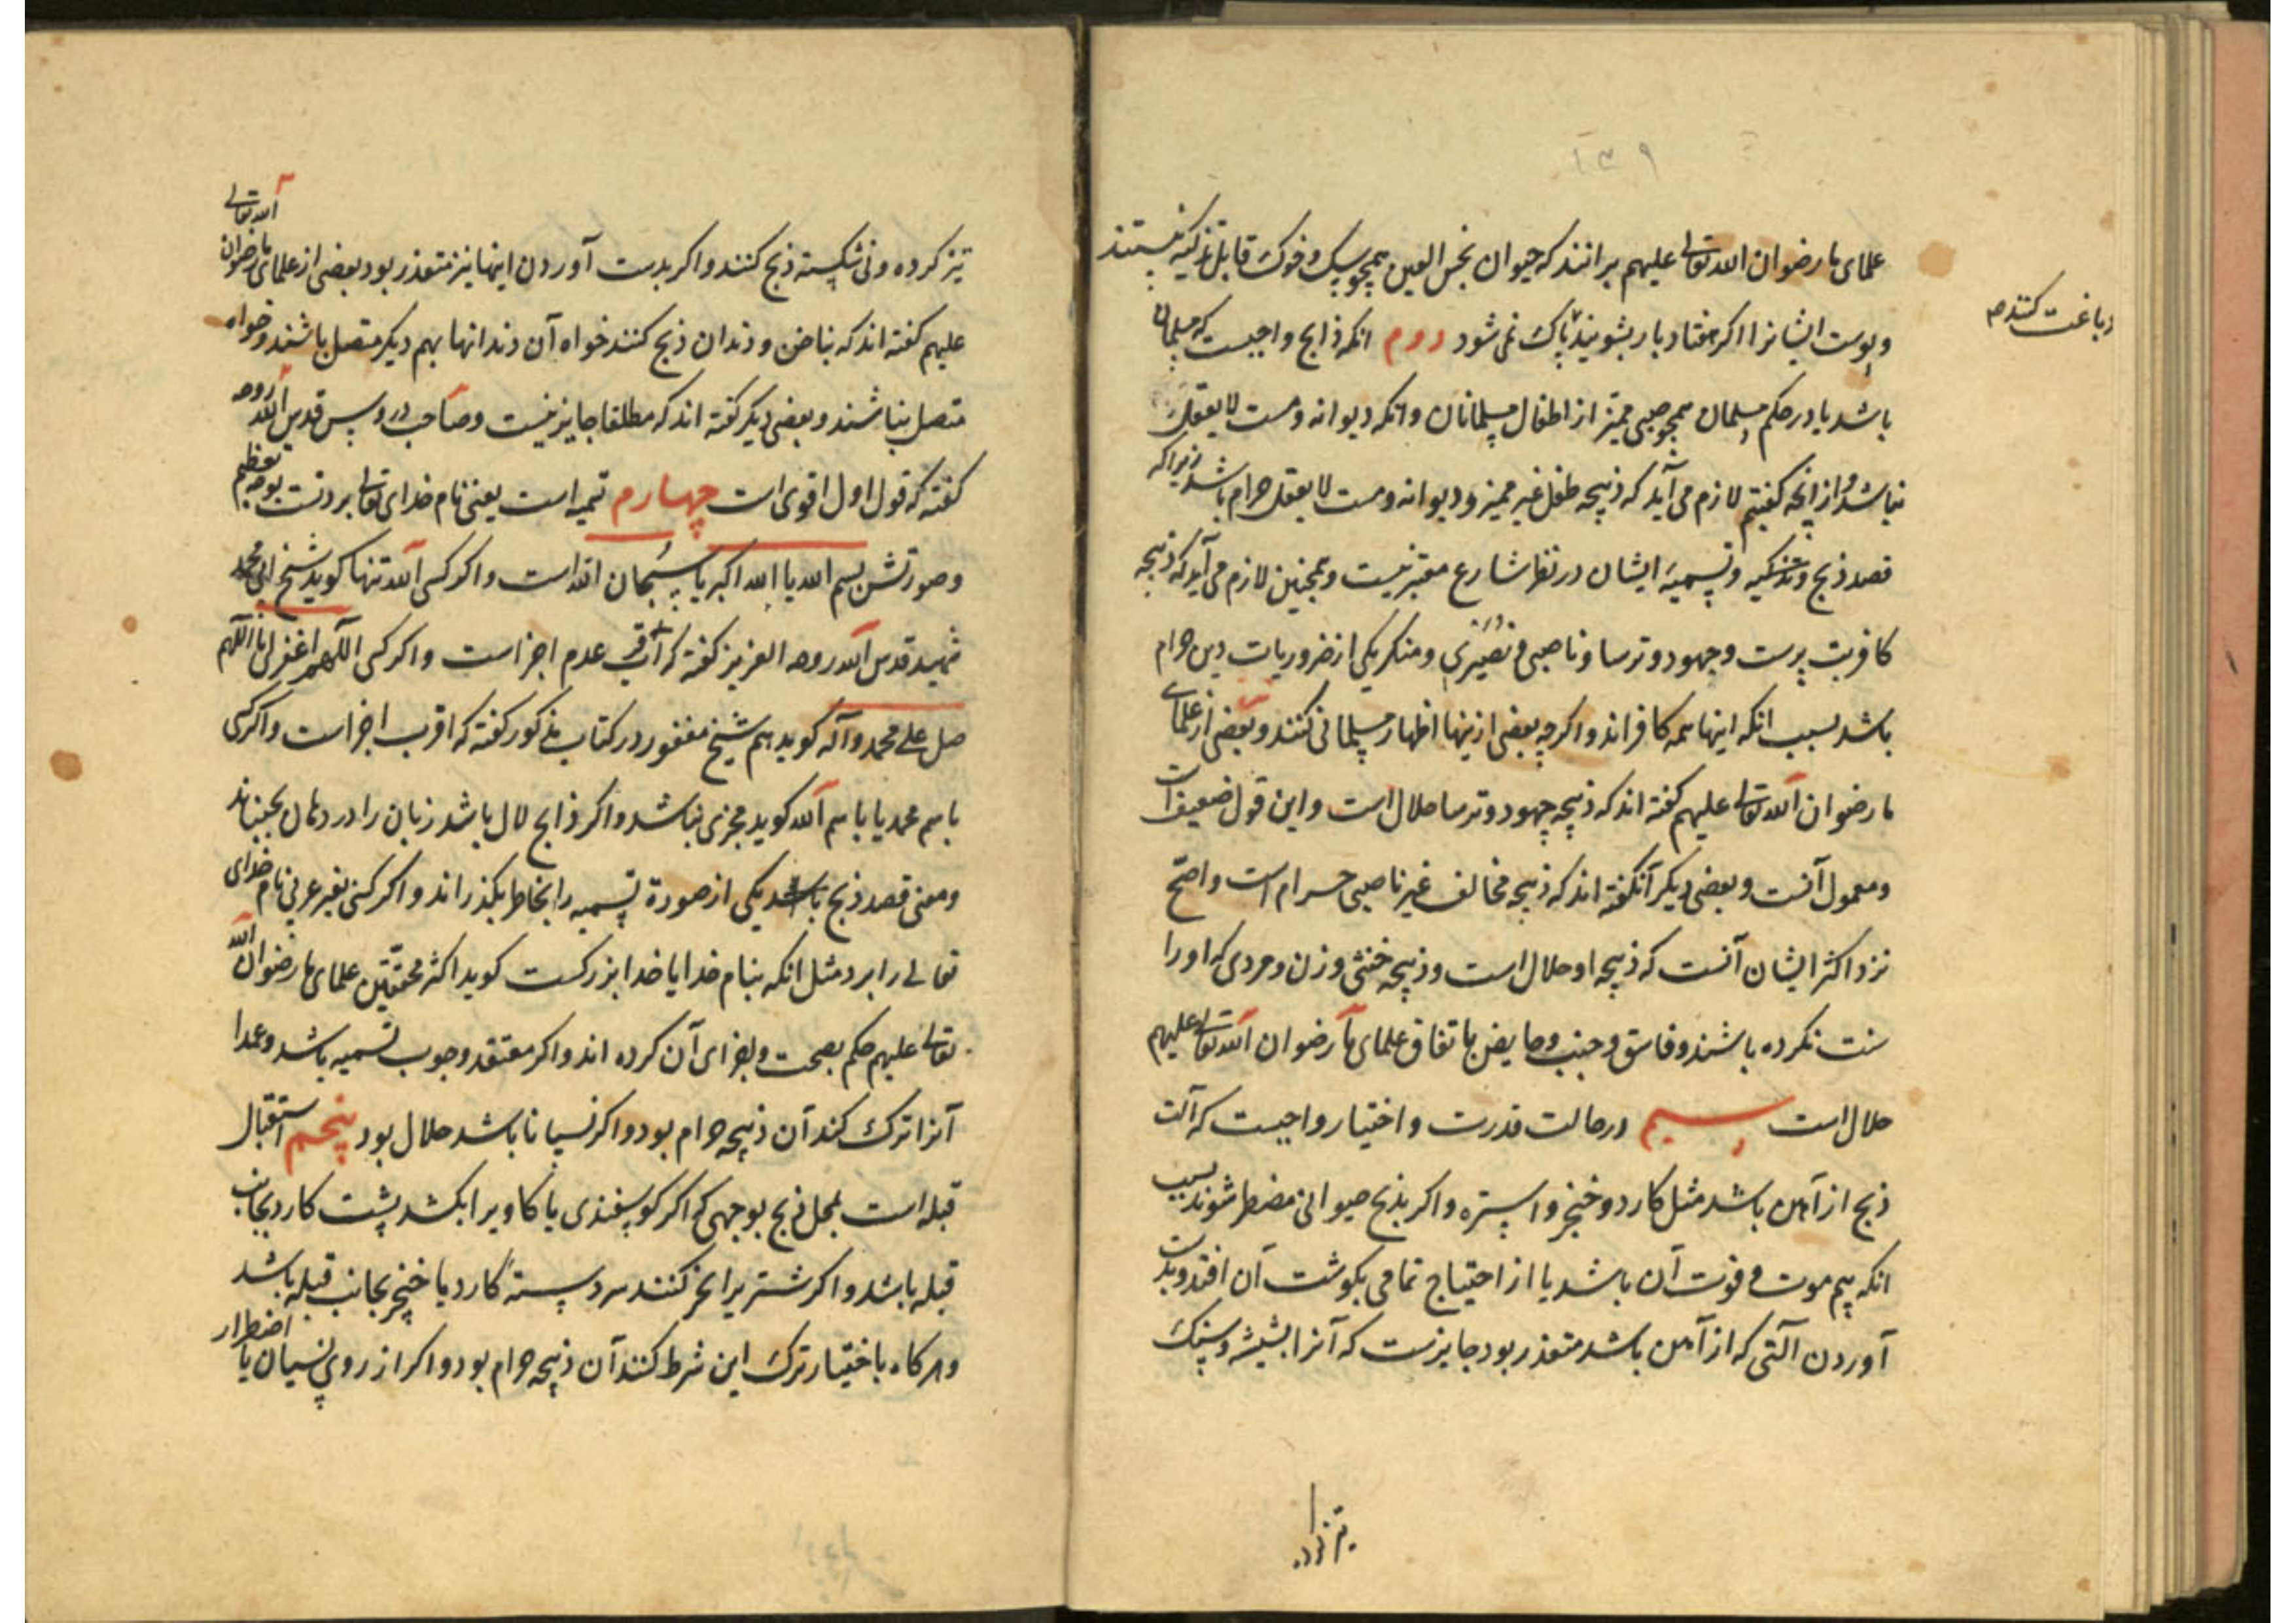 ۱۳۹
علمای ما رضوان الله تعالی علیهم برانند که حیوان نجس العین همچو سک و خوک قابل تذکیه نیستند
و پوست ایشانرا اکر هفتاد بار بشویند پاک نمی شود دوم انکه ذابح واجبست که مسلمان
دباغت کنند
باشد یا در حکم مسلمان همچو صبی ممیز از اطفال مسلمانان وانکه دیوانه و مست لا یعقل
نباشد و از انچه کفتیم لازم می آید که ذبیحه طفل غیر ممیز و دیوانه و مست لا یعقل حرام باشد زیراکه
قصد ذبح و تذکیه و تسمیه ایشان در نظر شارع معتبر نیست و همچنین لازم می آید که ذبیحه
کافر بت پرست و جهود و ترسا و ناصبی و نصیری و منکر یکی از ضروریات دین حرام
باشد بسبب انکه اینها همه کافراند و اکرچه بعضی ازینها اظهار مسلمانی کنند و بعضی از علمای
ما رضوان الله تعالی علیهم کفته اند که ذبیحه جهود و ترسا حلال است و این قول ضعیف است
و معمول آنست و بعضی دیکر آنکفته اند که ذبیحه مخالف غیر ناصبی حرام است و اصح
نزد اکثر ایشان آنست که ذبیحه او حلال است و ذبیحه خنثی و زن و مردی که او را
سنت نکرده باشند و فاسق و جنب و حایض باتفاق علمای ما رضوان الله تعالی علیهم
حلال است سیم در حالت قدرت و اختیار واجبست که آلت
ذبح از آهن باشد مثل کارد و خنجر و استره و اکر بذبح حیوانی مضطر شوند بسبب
انکه بیم موت و فوت آن باشد یا از احتیاج تمامی بکوشت آن افتد و بدست
آوردن آلتی که از آهن باشد متعذر بود جایزست که آنرا بشیشه و سنک
تیز کرده
تیز کرده و نی شکسته ذبح کنند و اکر بدست آوردن اینها نیز متعذر بود بعضی از علمای ما رضوان الله تعالی
علیهم کفته اند که بناخن و دندان ذبح کنند خواه آن دندانها بهم دیکر متصل باشند و خواه
متصل نباشند و بعضی دیکر کفته اند که مطلقا جایز نیست و صاحب دروس قدس الله روحه
کفته که قول اول اقوی است چهارم تسمیه است یعنی نام خدای تعالی بردنست بوجه تعظیم
و صورتش بسم الله یا الله اکبر یا سبحان الله است و اکر کسی الله تنها کوید شیخ ابی محمد
شهید قدس الله روحه العزیز کفته که اقرب عدم اجزا است و اکر کسی اللهم اغفر لنا اللهم
صل علی محمد و آله کوید هم شیخ مغفور در کتاب مذکور کفته که اقرب اجزا است و اکر کسی
باسم محمد یا باسم الله کوید مجزی نباشد و اکر ذابح لال باشد زبان را در دهان بجنباند
و معنی قصد ذبح باشد یکی از صورة تسمیه را بخاطر بکذراند و اکر کسی بغیر عربی نام خدای
تعالی را برد مثل انکه بنام خدا یا خدا بزرکست کوید اکثر محققین علمای ما رضوان الله
تعالی علیهم حکم بصحت و اجزای آن کرده اند و اکر معتقد وجوب تسمیه باشد و عمدا
آنرا ترک کند آن ذبیحه حرام بود و اکر نسیانا باشد حلال بود پنجم استقبال
قبله است بمحل ذبح بوجهی که اکر کوسفندی یا کاویرا بکشد پشت کارد بجانب
قبله باشد و اکر شتریرا نحر کنند سر دسته کارد یا خنجر بجانب قبله باشد
و هرکاه باختیار ترک این شرط کنند آن ذبیحه حرام بود و اکر از روی نسیان یا اضطرار